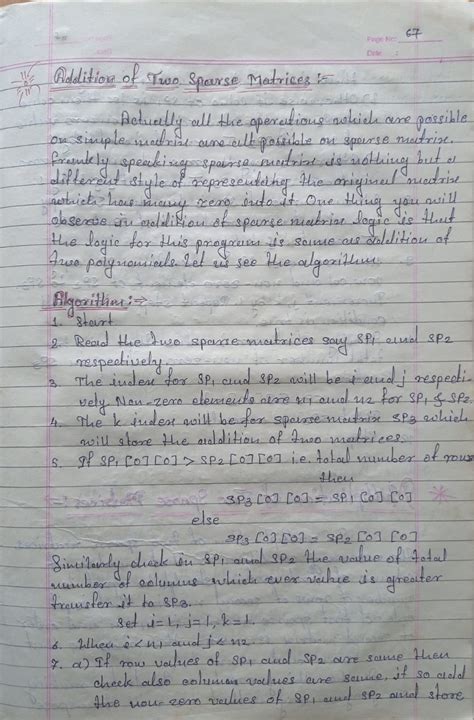 Page No: 67
Date :
Addition of Two Sparse Matrices :-
Actually all the operations which are possible
on simple matrix are all possible on sparse matrix.
frankly speaking sparse matrix is nothing but a
different style of representating the original matrix
which has many zero into it. One thing you will
observe in addition of sparse matrix logic is that
the logic for this program is same as addition of
two polynomials. Let us see the algorithm.
Algorithm :->
1. Start
2. Read the two sparse matrices say SP1 and SP2
respectively
3. The index for SP1 and SP2 will be i and j respecti-
vely. Non-zero elements are n1 and n2 for SP1 & SP2.
4. The k index will be for sparse matrix SP3 which
will store the addition of two matrices.
5. If SP1 [0] [0] > SP2 [0] [0] i.e. total number of rows
then
SP3 [0] [0] = SP1 [0] [0]
else
SP3 [0] [0] = SP2 [0] [0]
Similarly check in SP1 and SP2 the value of total
number of columns which ever value is greater
transfer it to SP3.
Set i=1, j=1, k=1.
6. When i < n1 and j < n2.
7. a) If row values of SP1 and SP2 are same then
check also column values are same, if so add
the non-zero values of SP1 and SP2 and store